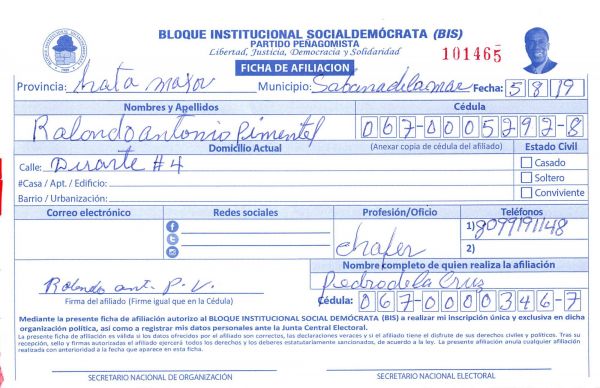 BLOQUE INSTITUCIONAL SOCIALDEMÓCRATA (BIS)
PARTIDO PEÑAGOMISTA
Libertad, Justicia, Democracia y Solidaridad
101465
FICHA DE AFILIACION
Provincia: hata mayor Municipio: Sabana de la mar Fecha: 5/8/19
Nombres y Apellidos Cédula
Rolondo antonio Pimentel 067-0005292-8
Domicilio Actual (Anexar copia de cédula del afiliado) Estado Civil
Calle: Duarte #4 Casado
#Casa / Apt. / Edificio: Soltero
Barrio / Urbanización: Conviviente
Correo electrónico Redes sociales Profesión/Oficio Teléfonos
1) 8099191148
chofer 2)
Nombre completo de quien realiza la afiliación
Rolondo ant. P. V. Pedro de la Cruz
Firma del afiliado (Firme igual que en la Cédula) Cédula: 067-0000346-7
Mediante la presente ficha de afiliación autorizo al BLOQUE INSTITUCIONAL SOCIAL DEMÓCRATA (BIS) a realizar mi inscripción única y exclusiva en dicha
organización política, así como a registrar mis datos personales ante la Junta Central Electoral.
La presente ficha de afiliación es válida si los datos ofrecidos por el afiliado son correctos, las declaraciones veraces y si el afiliado tiene el disfrute de sus derechos civiles y políticos. Tras su
recepción, sello y firmas autorizadas el afiliado ejercerá todos los derechos y los deberes estatutariamente sancionados, de acuerdo a la ley. La presente afiliación anula cualquier afiliación
realizada con anterioridad a la fecha que aparece en esta ficha.
SECRETARIO NACIONAL DE ORGANIZACIÓN SECRETARIO NACIONAL ELECTORAL